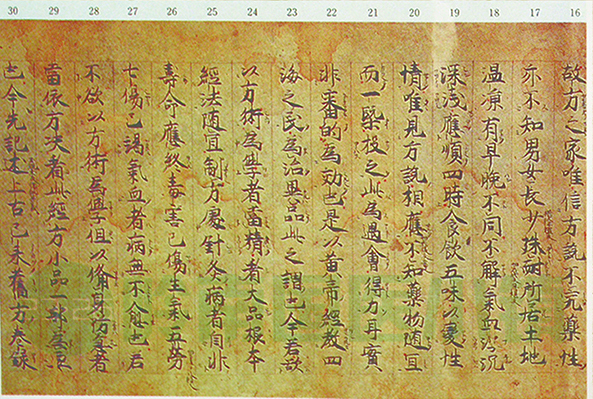 30 29 28 27 26 25 24 23 22 21 20 19 18 17 16
故方之家唯信方說不究藥性
亦不知男女長少殊耐所居土地
温凉有早晚不同不解氣血浮沉
深淺應順四時食飲五味以變性
情唯見方說相應不知藥物隨宜
而一槩投之此為過會得力耳實
非審的為効也是以黄帝經教四
海之民為治異品此之謂也今若欲
以方術為學者當精看大品根本
經法隨宜制方處針灸病者自非
壽命應終毒害已傷生氣五勞
七傷已竭氣血者病無不愈也若
不欲以方術為學但以備身防急者
當依方决者此經方小品一部
也今先記述上古已来舊方卷錄